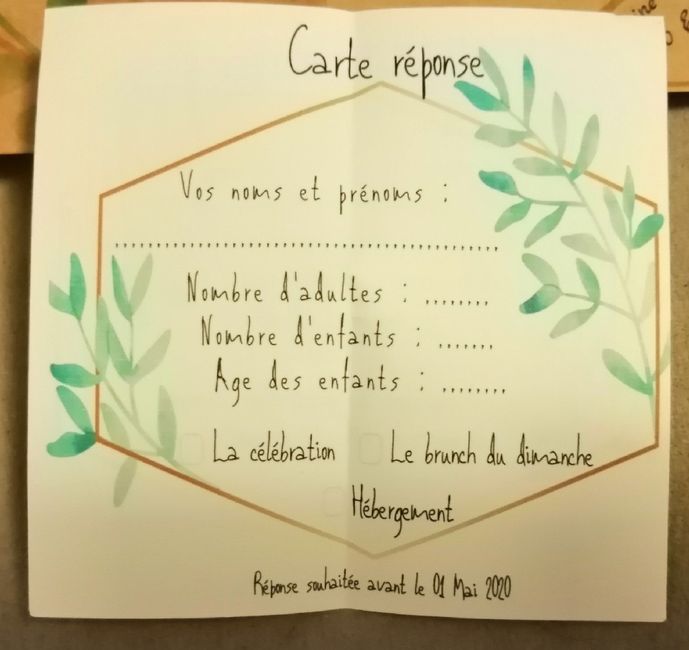 Carte réponse
Vos noms et prénoms :
................................................
Nombre d'adultes : ........
Nombre d'enfants : .......
Age des enfants : ........
La célébration Le brunch du dimanche
Hébergement
Réponse souhaitée avant le 01 Mai 2020